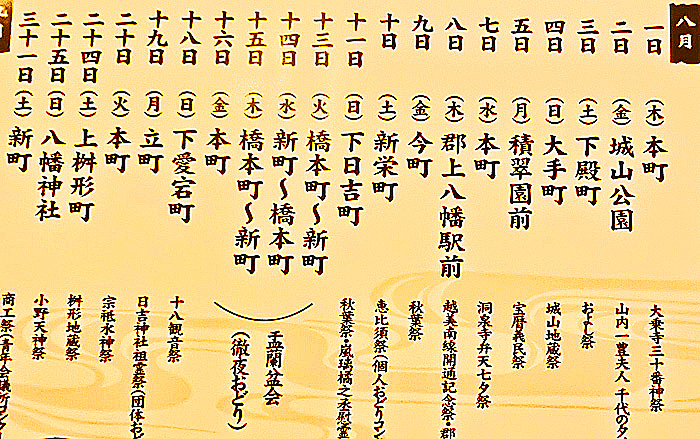 八月
一日（木）本町 大乗寺三十番神祭
二日（金）城山公園 山内一豊夫人 千代の夕
三日（土）下殿町 およし祭
四日（日）大手町 城山地蔵祭
五日（月）積翠園前 宝暦義民祭
七日（水）本町 洞泉寺弁天七夕祭
八日（木）郡上八幡駅前 越美南線開通記念祭・郡
九日（金）今町 秋葉祭
十日（土）新栄町 恵比須祭（個人おどりコン
十一日（日）下日吉町 秋葉祭・嵐瑞橘之丞慰霊
十三日（火）橋本町〜新町
十四日（水）新町〜橋本町
十五日（木）橋本町〜新町
十六日（金）本町
盂蘭盆会
（徹夜おどり）
十八日（日）下愛宕町 十八観音祭
十九日（月）立町 日吉神社祖霊祭（団体おど
二十日（火）本町 宗祇水神祭
二十四日（土）上桝形町 桝形地蔵祭
二十五日（日）八幡神社 小野天神祭
三十一日（土）新町 商工祭（青年会議所コンク